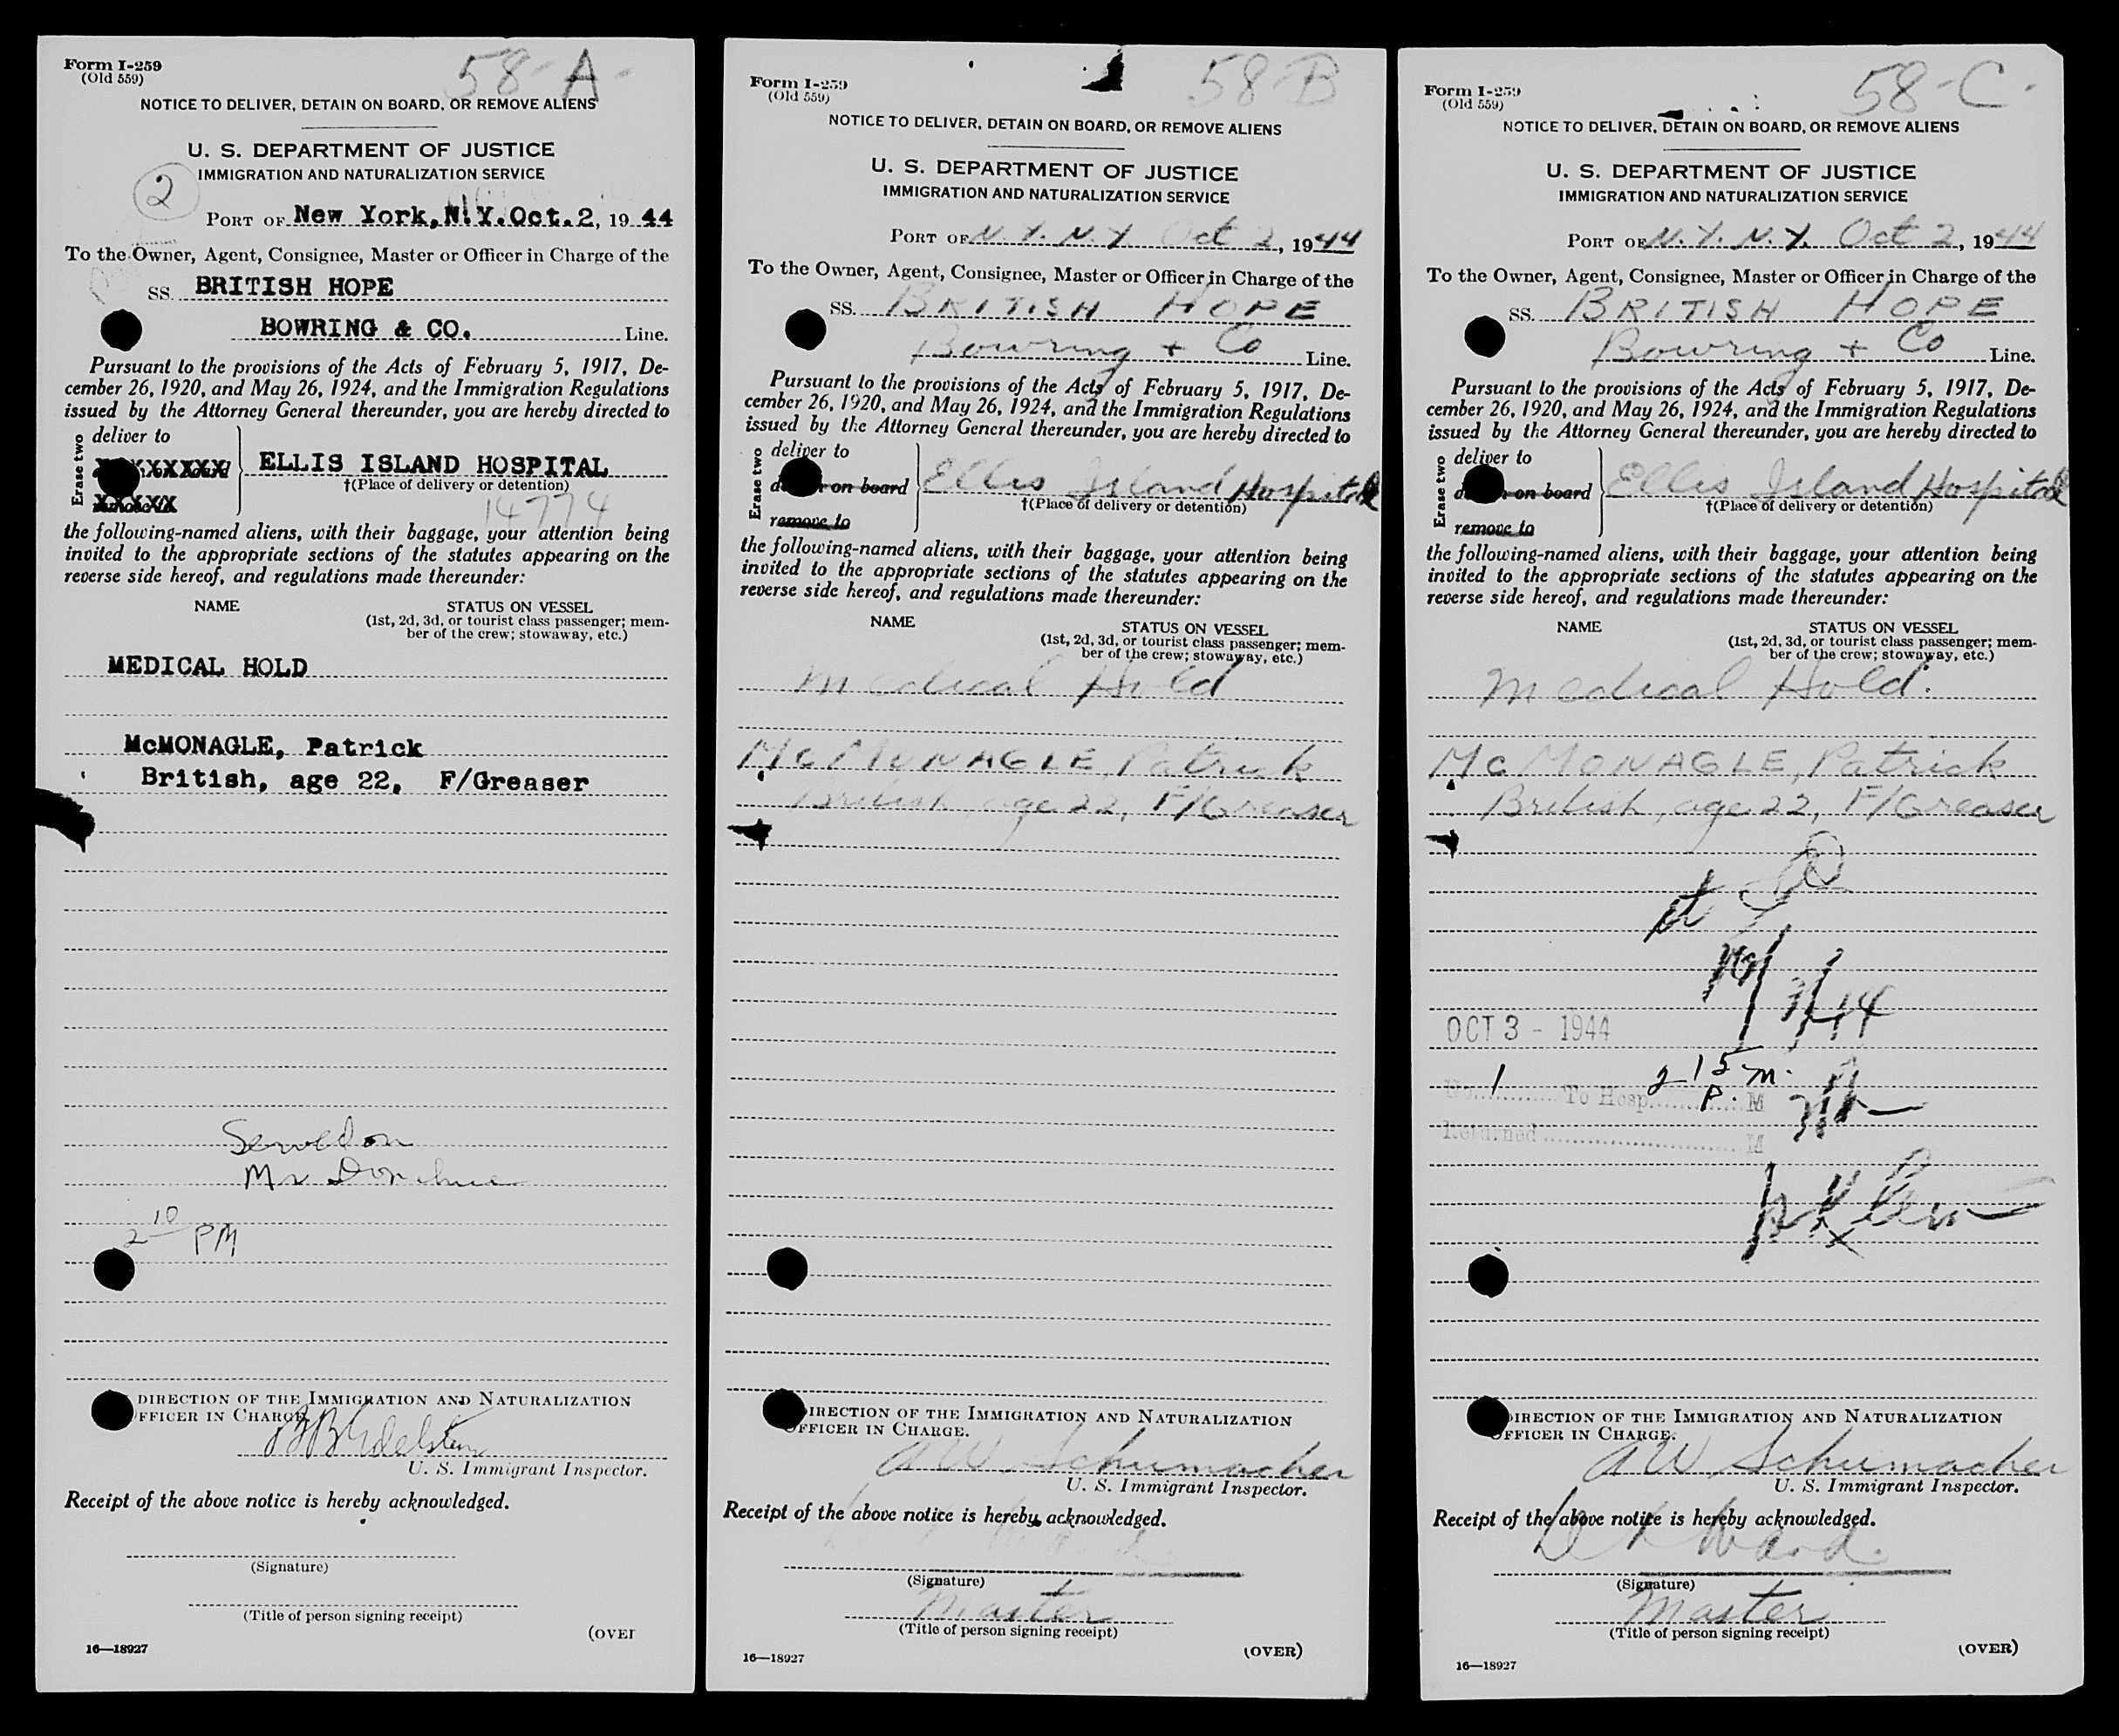 Form I-259
(Old 559)
58-A-
NOTICE TO DELIVER, DETAIN ON BOARD, OR REMOVE ALIENS
U. S. DEPARTMENT OF JUSTICE
IMMIGRATION AND NATURALIZATION SERVICE
2
PORT OF New York, N.Y. Oct. 2, 1944
To the Owner, Agent, Consignee, Master or Officer in Charge of the
SS. BRITISH HOPE
BOWRING & CO. Line.
Pursuant to the provisions of the Acts of February 5, 1917, De-
cember 26, 1920, and May 26, 1924, and the Immigration Regulations
issued by the Attorney General thereunder, you are hereby directed to
Erase two
deliver to
on board
ELLIS ISLAND HOSPITAL
†(Place of delivery or detention)
14774
the following-named aliens, with their baggage, your attention being
invited to the appropriate sections of the statutes appearing on the
reverse side hereof, and regulations made thereunder:
NAME STATUS ON VESSEL
(1st, 2d, 3d, or tourist class passenger; mem-
ber of the crew; stowaway, etc.)
MEDICAL HOLD
McMONAGLE, Patrick
British, age 22, F/Greaser
Served on
Mr Donahue
2 10 PM
DIRECTION OF THE IMMIGRATION AND NATURALIZATION
FFICER IN CHARGE.
Edelstein
U. S. Immigrant Inspector.
Receipt of the above notice is hereby acknowledged.
(Signature)
(Title of person signing receipt)
(OVER
16—18927
Form I-259
(Old 559)
58-B
NOTICE TO DELIVER, DETAIN ON BOARD, OR REMOVE ALIENS
U. S. DEPARTMENT OF JUSTICE
IMMIGRATION AND NATURALIZATION SERVICE
PORT OF N. Y. N. Y. Oct 2, 1944
To the Owner, Agent, Consignee, Master or Officer in Charge of the
SS. BRITISH HOPE
Bowring + Co Line.
Pursuant to the provisions of the Acts of February 5, 1917, De-
cember 26, 1920, and May 26, 1924, and the Immigration Regulations
issued by the Attorney General thereunder, you are hereby directed to
Erase two
deliver to
on board
remove to
Ellis Island Hospital
†(Place of delivery or detention)
the following-named aliens, with their baggage, your attention being
invited to the appropriate sections of the statutes appearing on the
reverse side hereof, and regulations made thereunder:
NAME STATUS ON VESSEL
(1st, 2d, 3d, or tourist class passenger; mem-
ber of the crew; stowaway, etc.)
Medical Hold
McMONAGLE, Patrick
British, age 22, F/Greaser
DIRECTION OF THE IMMIGRATION AND NATURALIZATION
OFFICER IN CHARGE.
A W Schumacher
U. S. Immigrant Inspector.
Receipt of the above notice is hereby acknowledged.
(Signature)
Master
(Title of person signing receipt)
(OVER)
16—18927
Form I-259
(Old 559)
58-C-
NOTICE TO DELIVER, DETAIN ON BOARD, OR REMOVE ALIENS
U. S. DEPARTMENT OF JUSTICE
IMMIGRATION AND NATURALIZATION SERVICE
PORT OF N. Y. N. Y. Oct 2, 1944
To the Owner, Agent, Consignee, Master or Officer in Charge of the
SS. BRITISH HOPE
Bowring + Co Line.
Pursuant to the provisions of the Acts of February 5, 1917, De-
cember 26, 1920, and May 26, 1924, and the Immigration Regulations
issued by the Attorney General thereunder, you are hereby directed to
Erase two
deliver to
on board
remove to
Ellis Island Hospital
†(Place of delivery or detention)
the following-named aliens, with their baggage, your attention being
invited to the appropriate sections of the statutes appearing on the
reverse side hereof, and regulations made thereunder:
NAME STATUS ON VESSEL
(1st, 2d, 3d, or tourist class passenger; mem-
ber of the crew; stowaway, etc.)
Medical Hold.
McMONAGLE, Patrick
British, age 22, F/Greaser
10/3/44
OCT 3 - 1944
No. 1 To Hosp. 2 15 P. M
Returned M
DIRECTION OF THE IMMIGRATION AND NATURALIZATION
OFFICER IN CHARGE.
A W Schumacher
U. S. Immigrant Inspector.
Receipt of the above notice is hereby acknowledged.
Ward.
(Signature)
Master
(Title of person signing receipt)
(OVER)
16—18927